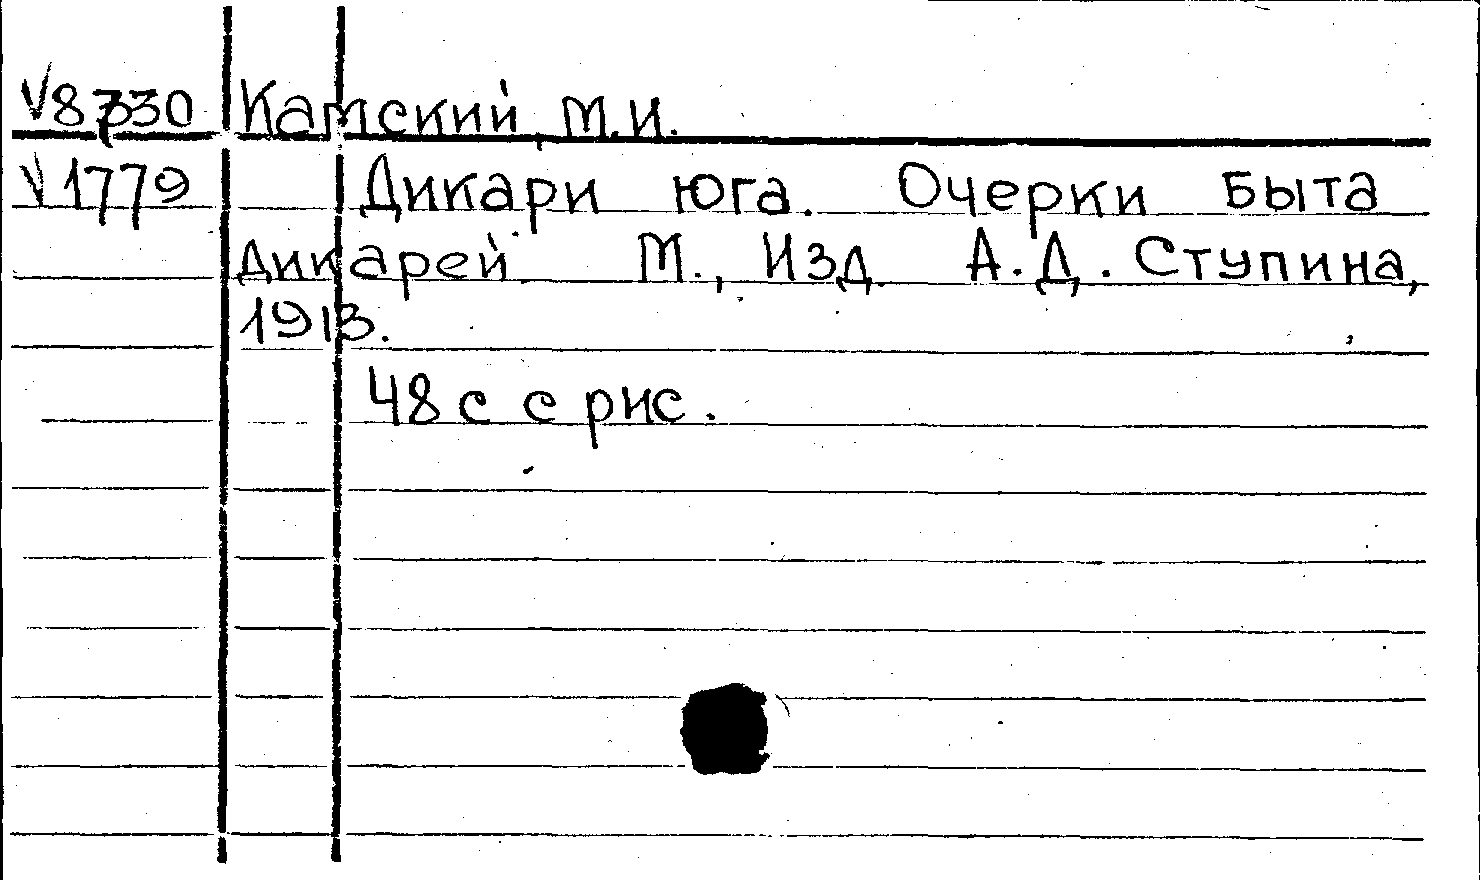 V8730 Камский, М.И.
V1779 Дикари юга. Очерки быта
дикарей М., Изд. А.Д. Ступина,
1913.
48 с с рис.